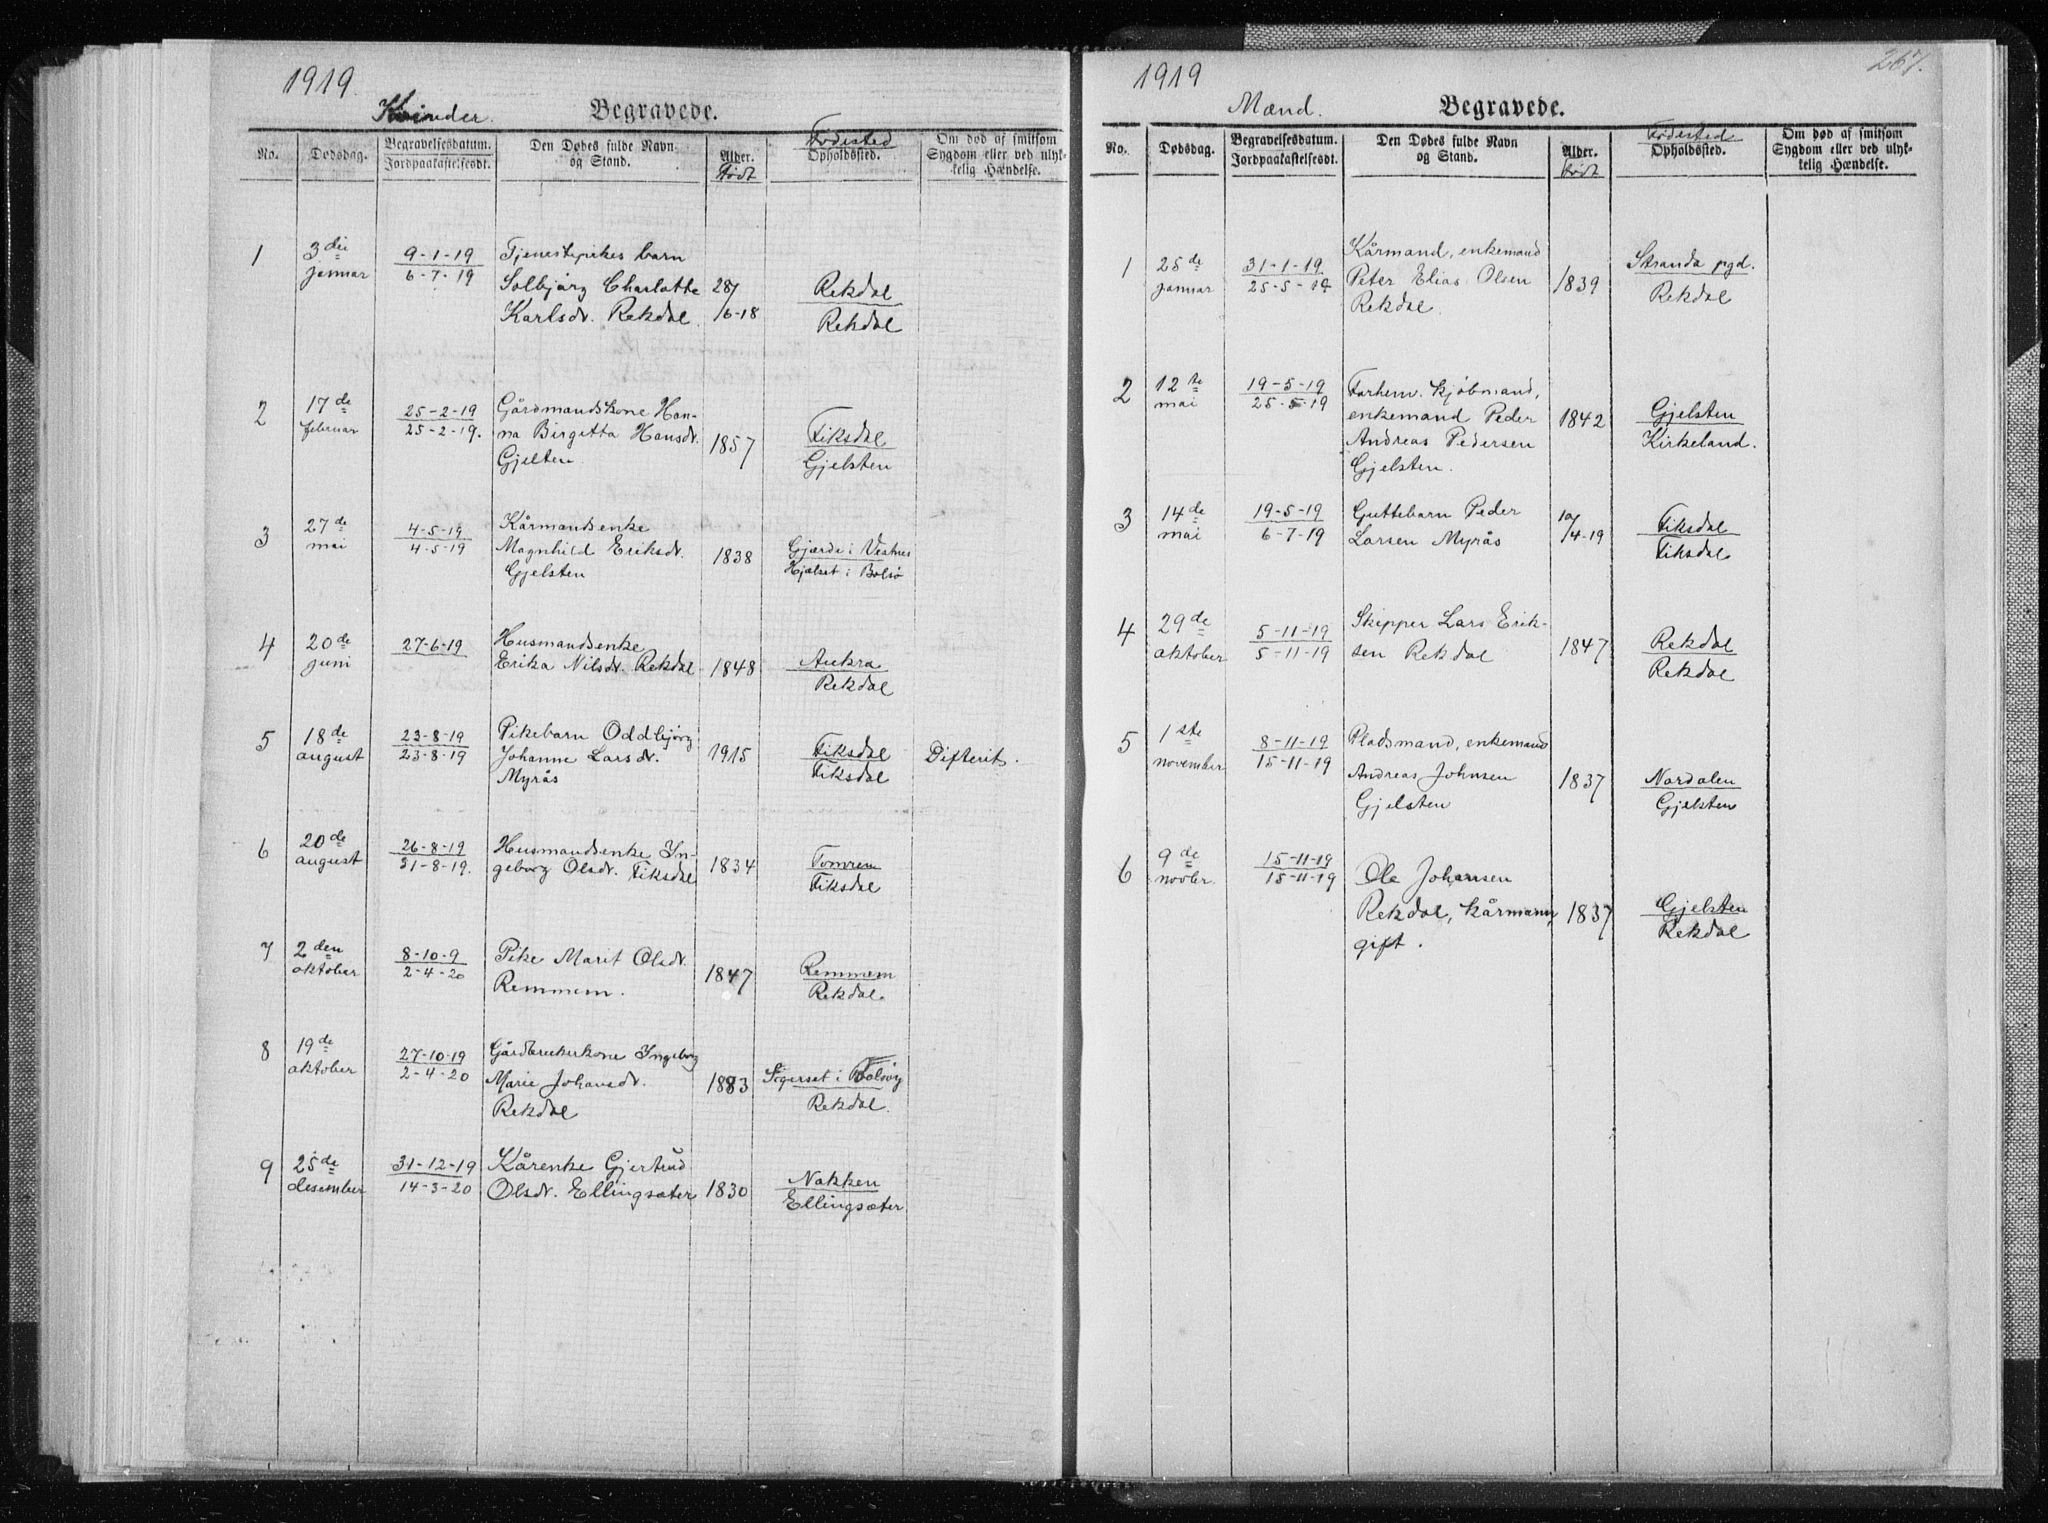 1919.
Kvinder. Begravede.
No. Dødsdag. Begravelsesdatum. Jordpaakastelsesdt. Den Dødes fulde Navn og Stand. Alder. født Fødested Opholdssted. Om død af smitsom Sygdom eller ved ulykkelig Hændelse.
1 3die januar 9-1-19 6-7-19 Tjenestepikes barn
Solbjørg Charlotte 28/6-18 Rekdal
Karlsdr. Rekdal. Rekdal
2 17de februar 25-2-19 25-2-19. Gårdmandskone Han-
na Birgitta Hansdr. 1857 Fiksdal
Gjelten. Gjelsten
3 27de mai 4-5-19 4-5-19 Kårmandsenke
Magnhild Eriksdr. 1838 Gjærde i Vestnes
Gjelsten Hjelset i Bolsø
4 20de juni 27-6-19 Husmandsenke
Erika Nilsdr. Rekdal 1848 Aukra
Rekdal
5 18de august 23-8-19 23-8-19 Pikebarn Oddbjørg
Johanne Larsdr. 1915 Fiksdal Difterit.
Myrås Fiksdal
6 20de august 26-8-19 31-8-19. Husmandsenke In-
geborg Olsdr. Fiksdal 1834 Tomrem
Fiksdal
7 2den oktober 8-10-9 2-4-20 Pike Marit Olsdr.
Remmem. 1847 Remmem
Rekdal.
8 19de oktober 27-10-19 2-4-20 Gårdbrukerkone Ingeborg
Marie Johansdr. 1883
Rekdal Rekdal.
9 25de desember 31-12-19 14-3-20 Kårenke Gjertrud
Olsdr. Ellingsæter 1830 Nakken
Ellingsæter
1919 267.
Mænd. Begravede.
No. Dødsdag. Begravelsesdatum. Jordpaakastelsesdt. Den Dødes fulde Navn og Stand. Alder. født Fødested Opholdssted. Om død af smitsom Sygdom eller ved ulykkelig Hændelse.
1 25de januar 31-1-19 25-5-19 Kårmand, enkemand
Peter Elias Olsen 1839 Stranda pgd.
Rekdal. Rekdal
2 12te mai 19-5-19 25-5-19 Forhem. kjøbmand,
enkemand Peder 1842 Gjelsten
Andreas Pedersen Kirkeland.
Gjelsten.
3 14de mai 19-5-19 6-7-19 Guttebarn Peder 10/4-19 Fiksdal
Larsen Myrås Fiksdal
4 29de oktober 5-11-19 5-11-19 Skipper Lars Erik-
sen Rekdal 1847 Rekdal
Rekdal
5 1ste november 8-11-19 15-11-19 Pladsmand, enkemand
Andreas Johnsen 1837 Nordalen
Gjelsten Gjelsten
6 9de novbr. 15-11-19 15-11-19 Ole Johansen
Rekdal, kårmann, 1837 Gjelsten
gift. Rekdal